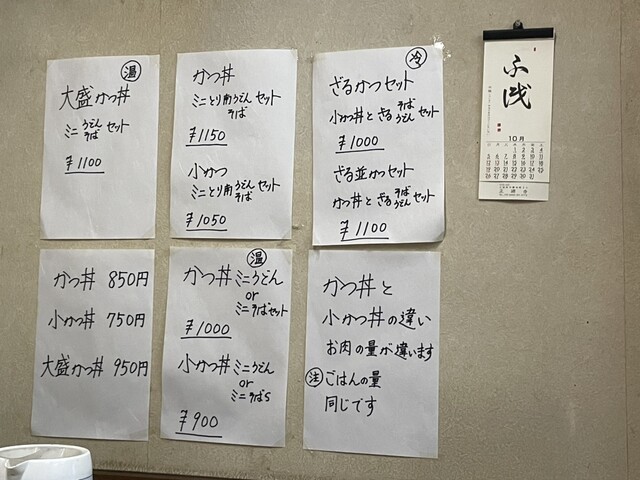 温
大盛かつ丼
ミニ うどん そば セット
¥1100
かつ丼
ミニとり南うどん そば セット
¥1150
小かつ
ミニとり南うどん そば セット
¥1050
冷
ざるかつセット
小かつ丼とざる そば うどん セット
¥1000
ざる並かつセット
かつ丼とざる そば うどん セット
¥1100
かつ丼 850円
小かつ丼 750円
大盛かつ丼 950円
温
かつ丼 ミニうどん
or
ミニそばセット
¥1000
小かつ丼 ミニうどん
or
ミニそば
¥900
かつ丼と
小かつ丼の違い
お肉の量が違います
注 ごはんの量
同じです
10月